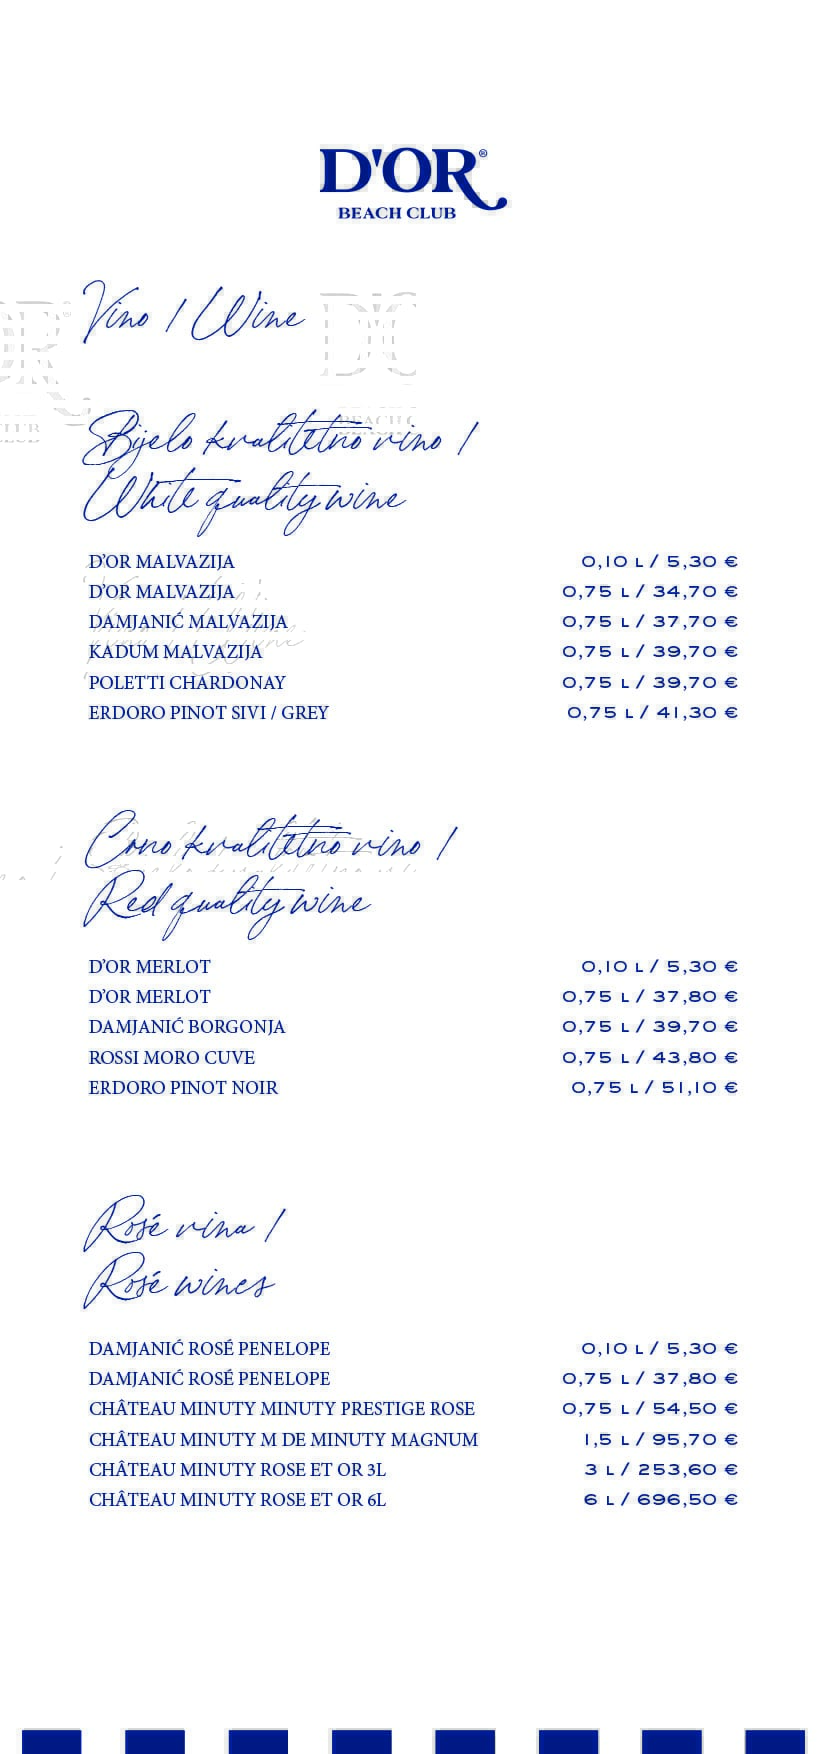 D'OR®
BEACH CLUB
Vino / Wine
Bijelo kvalitetno vino /
White quality wine
D'OR MALVAZIJA 0,10 L / 5,30 €
D'OR MALVAZIJA 0,75 L / 34,70 €
DAMJANIĆ MALVAZIJA 0,75 L / 37,70 €
KADUM MALVAZIJA 0,75 L / 39,70 €
POLETTI CHARDONAY 0,75 L / 39,70 €
ERDORO PINOT SIVI / GREY 0,75 L / 41,30 €
Crno kvalitetno vino /
Red quality wine
D'OR MERLOT 0,10 L / 5,30 €
D'OR MERLOT 0,75 L / 37,80 €
DAMJANIĆ BORGONJA 0,75 L / 39,70 €
ROSSI MORO CUVE 0,75 L / 43,80 €
ERDORO PINOT NOIR 0,75 L / 51,10 €
Rosé vina /
Rosé wines
DAMJANIĆ ROSÉ PENELOPE 0,10 L / 5,30 €
DAMJANIĆ ROSÉ PENELOPE 0,75 L / 37,80 €
CHÂTEAU MINUTY MINUTY PRESTIGE ROSE 0,75 L / 54,50 €
CHÂTEAU MINUTY M DE MINUTY MAGNUM 1,5 L / 95,70 €
CHÂTEAU MINUTY ROSE ET OR 3L 3 L / 253,60 €
CHÂTEAU MINUTY ROSE ET OR 6L 6 L / 696,50 €